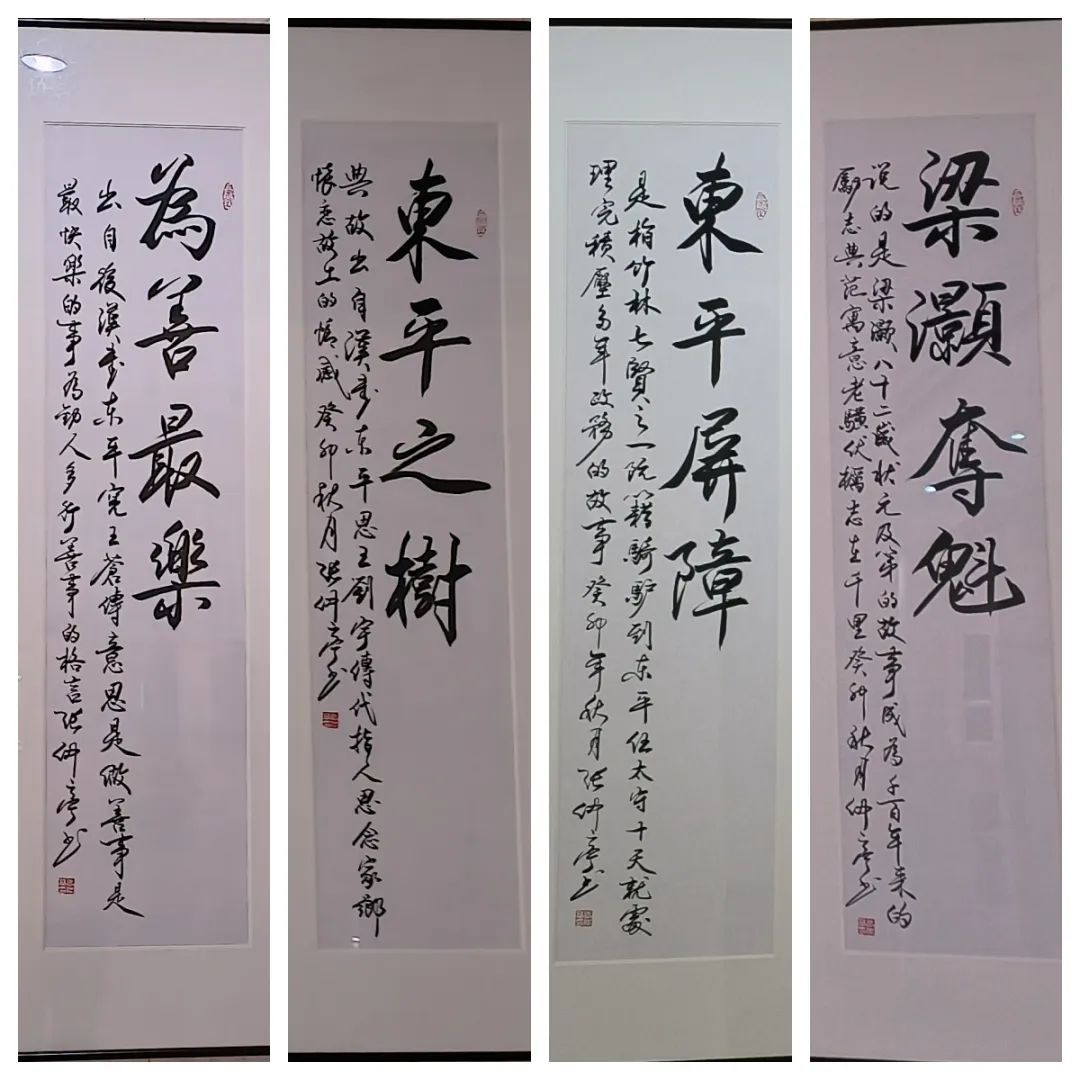 為善最樂
出自後漢書东平宪王蒼傳意思是做善事是
最快樂的事為勸人多行善事的格言张仲亭书
東平之樹
典故出自漢書东平思王劉宇傳代指人思念家鄉
懷恋故土的情感癸卯秋月张仲亭书
東平屏障
是指竹林七賢之一阮籍騎驴到东平任太守十天就處
理完積壓多年政務的故事癸卯年秋月张仲亭书
梁灝奪魁
说的是梁灏八十二歲状元及第的故事成為千百年来的
勵志典范寓意老驥伏櫪志在千里癸卯秋月仲亭书